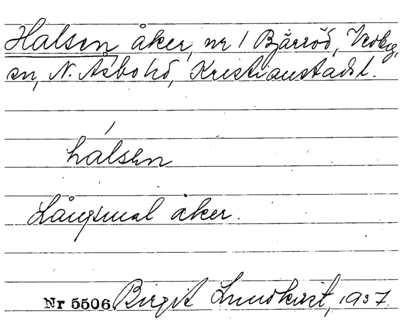 Halsen åker, nr 1 Bjärröd, Vedby
sn, N. Åsbo hd, Kristianstads l.
halsen
Långsmal åker.
Nr 5506 Birgit Lundkvist, 1937.